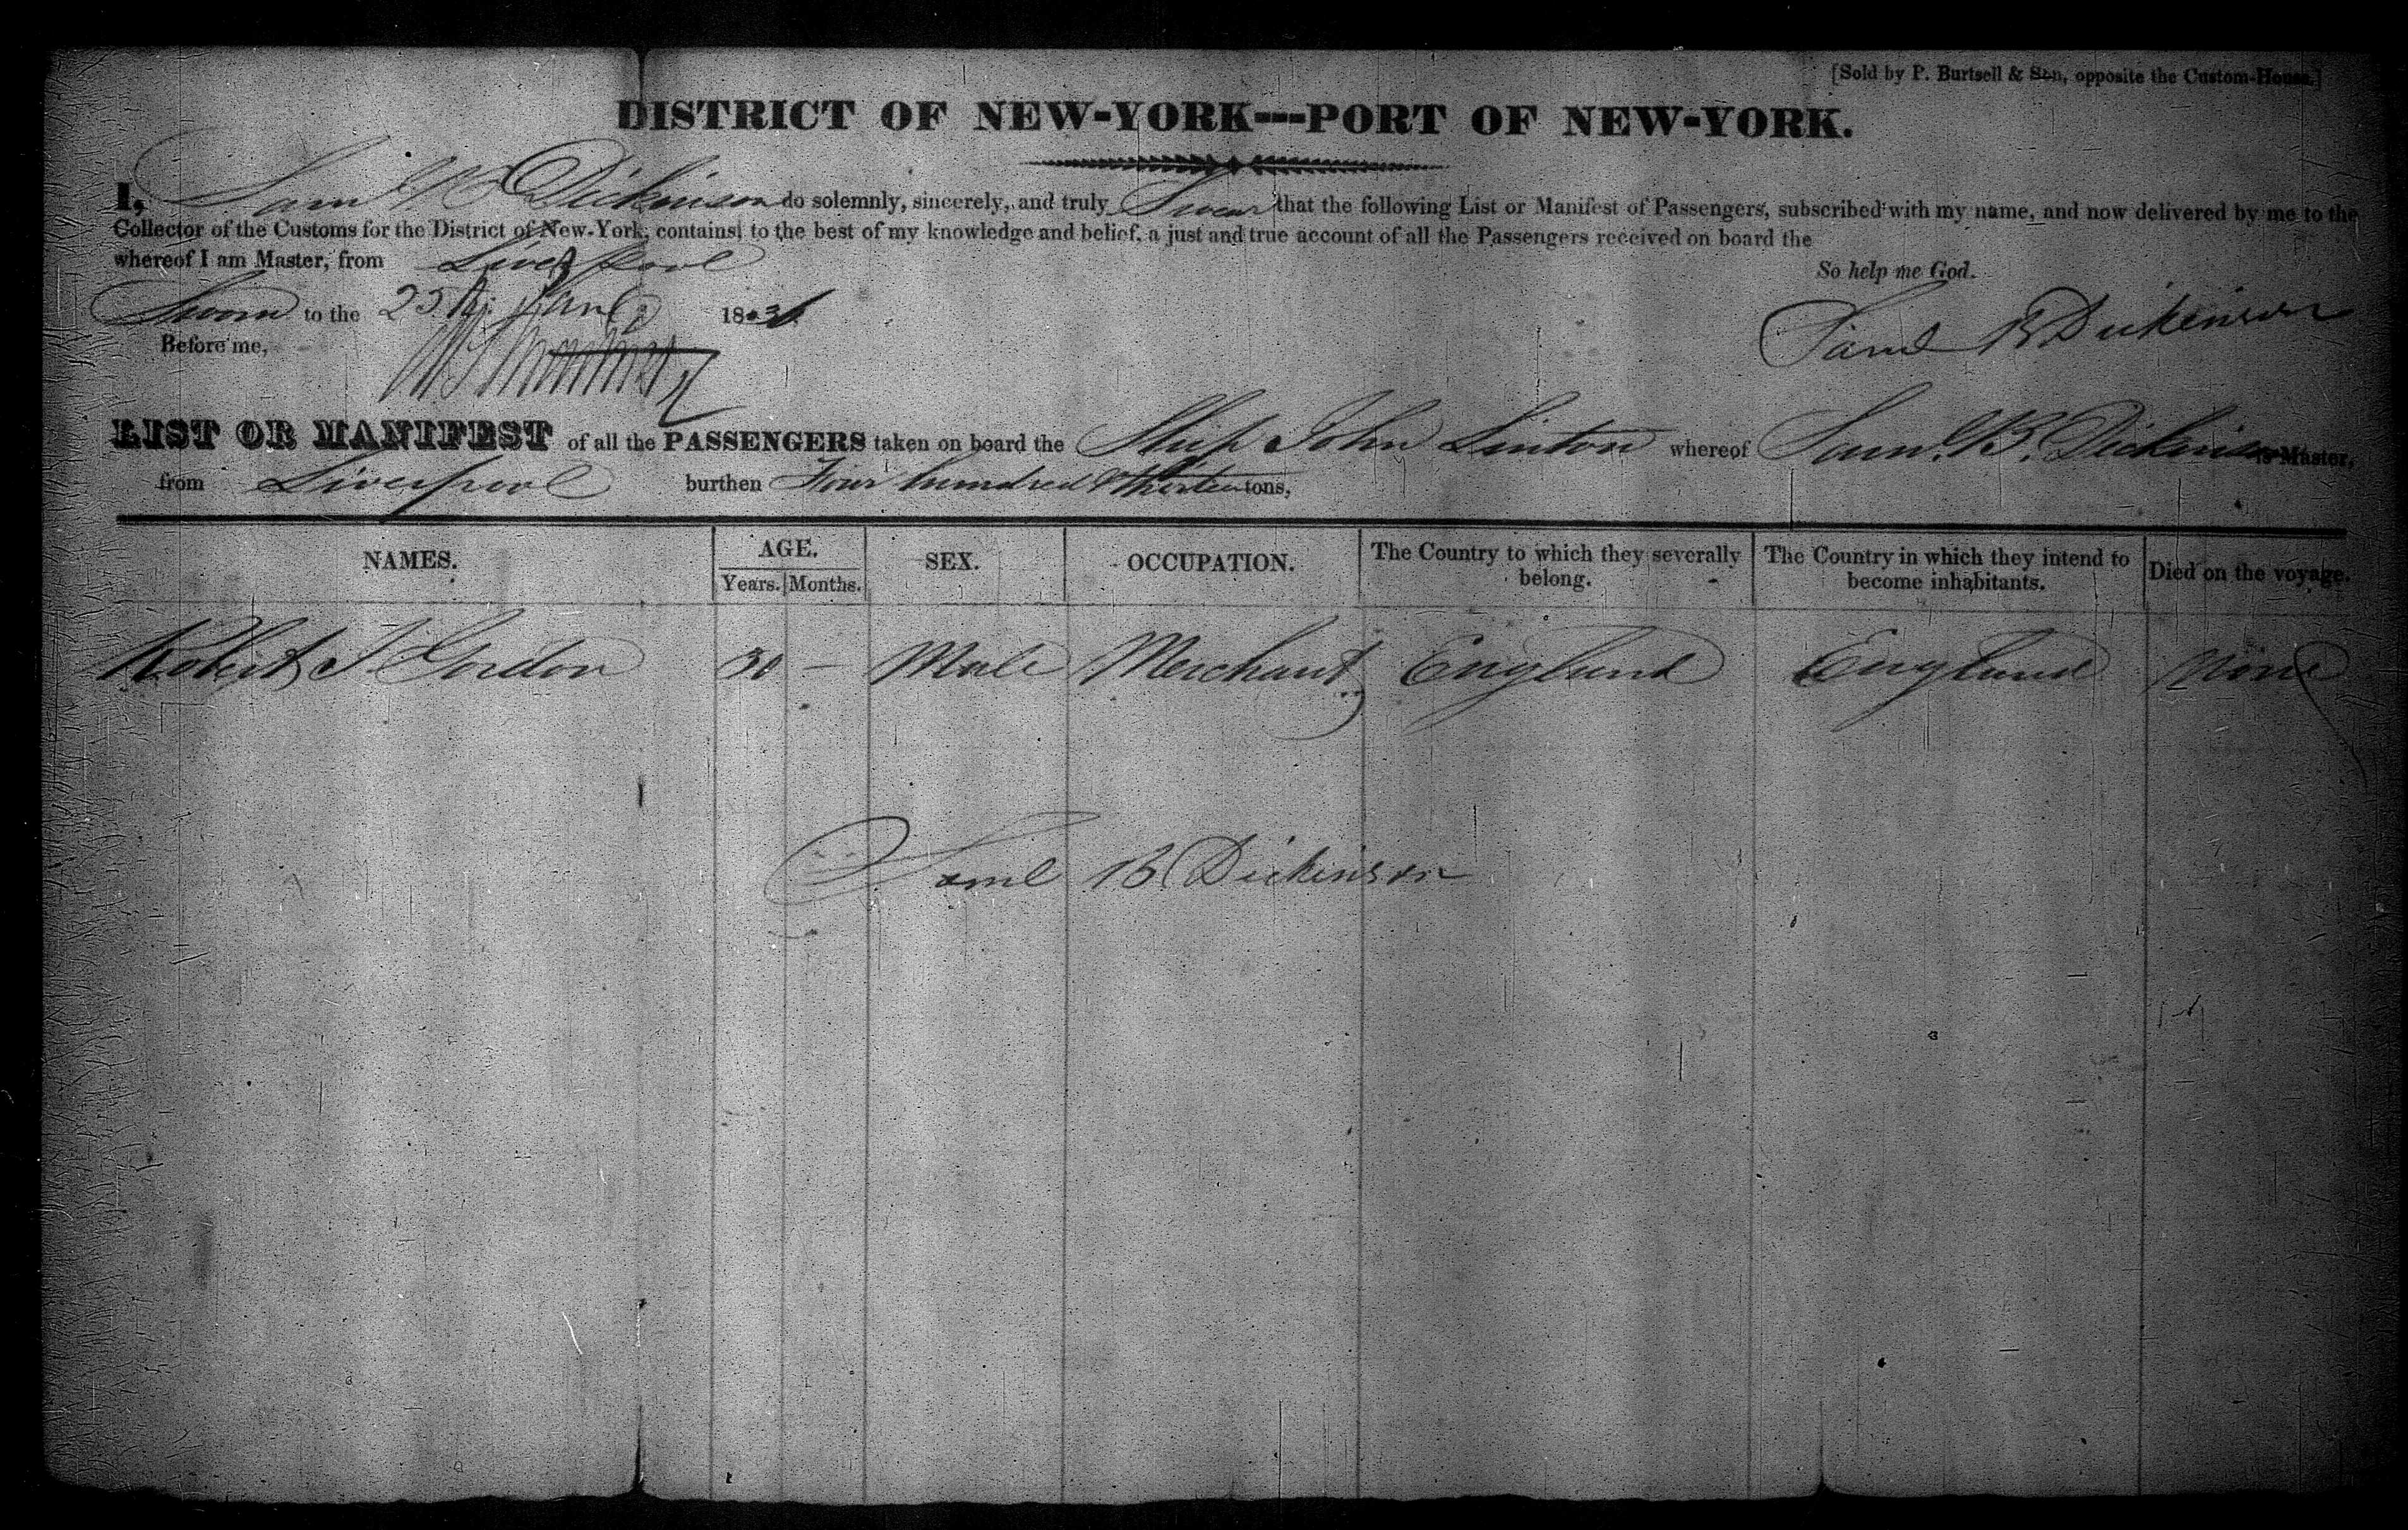 [Sold by P. Burtsell & Son, opposite the Custom-House.]
DISTRICT OF NEW-YORK---PORT OF NEW-YORK.
I, Saml B Dickinson do solemnly, sincerely, and truly Swear that the following List or Manifest of Passengers, subscribed with my name, and now delivered by me to the
Collector of the Customs for the District of New-York, contains, to the best of my knowledge and belief, a just and true account of all the Passengers received on board the
whereof I am Master, from Liverpool
So help me God.
Sworn to the 25th Jany 183
Before me,
Saml B Dickinson
LIST OR MANIFEST of all the PASSENGERS taken on board the Ship John Linton whereof Saml. B. Dickinson is Master,
from Liverpool burthen Four hundred & thirteen tons,
NAMES. AGE. SEX. OCCUPATION. The Country to which they severally belong. The Country in which they intend to become inhabitants. Died on the voyage.
Years. Months.
Robert S Gordon 30 — Male Merchant England England None
Saml B Dickinson